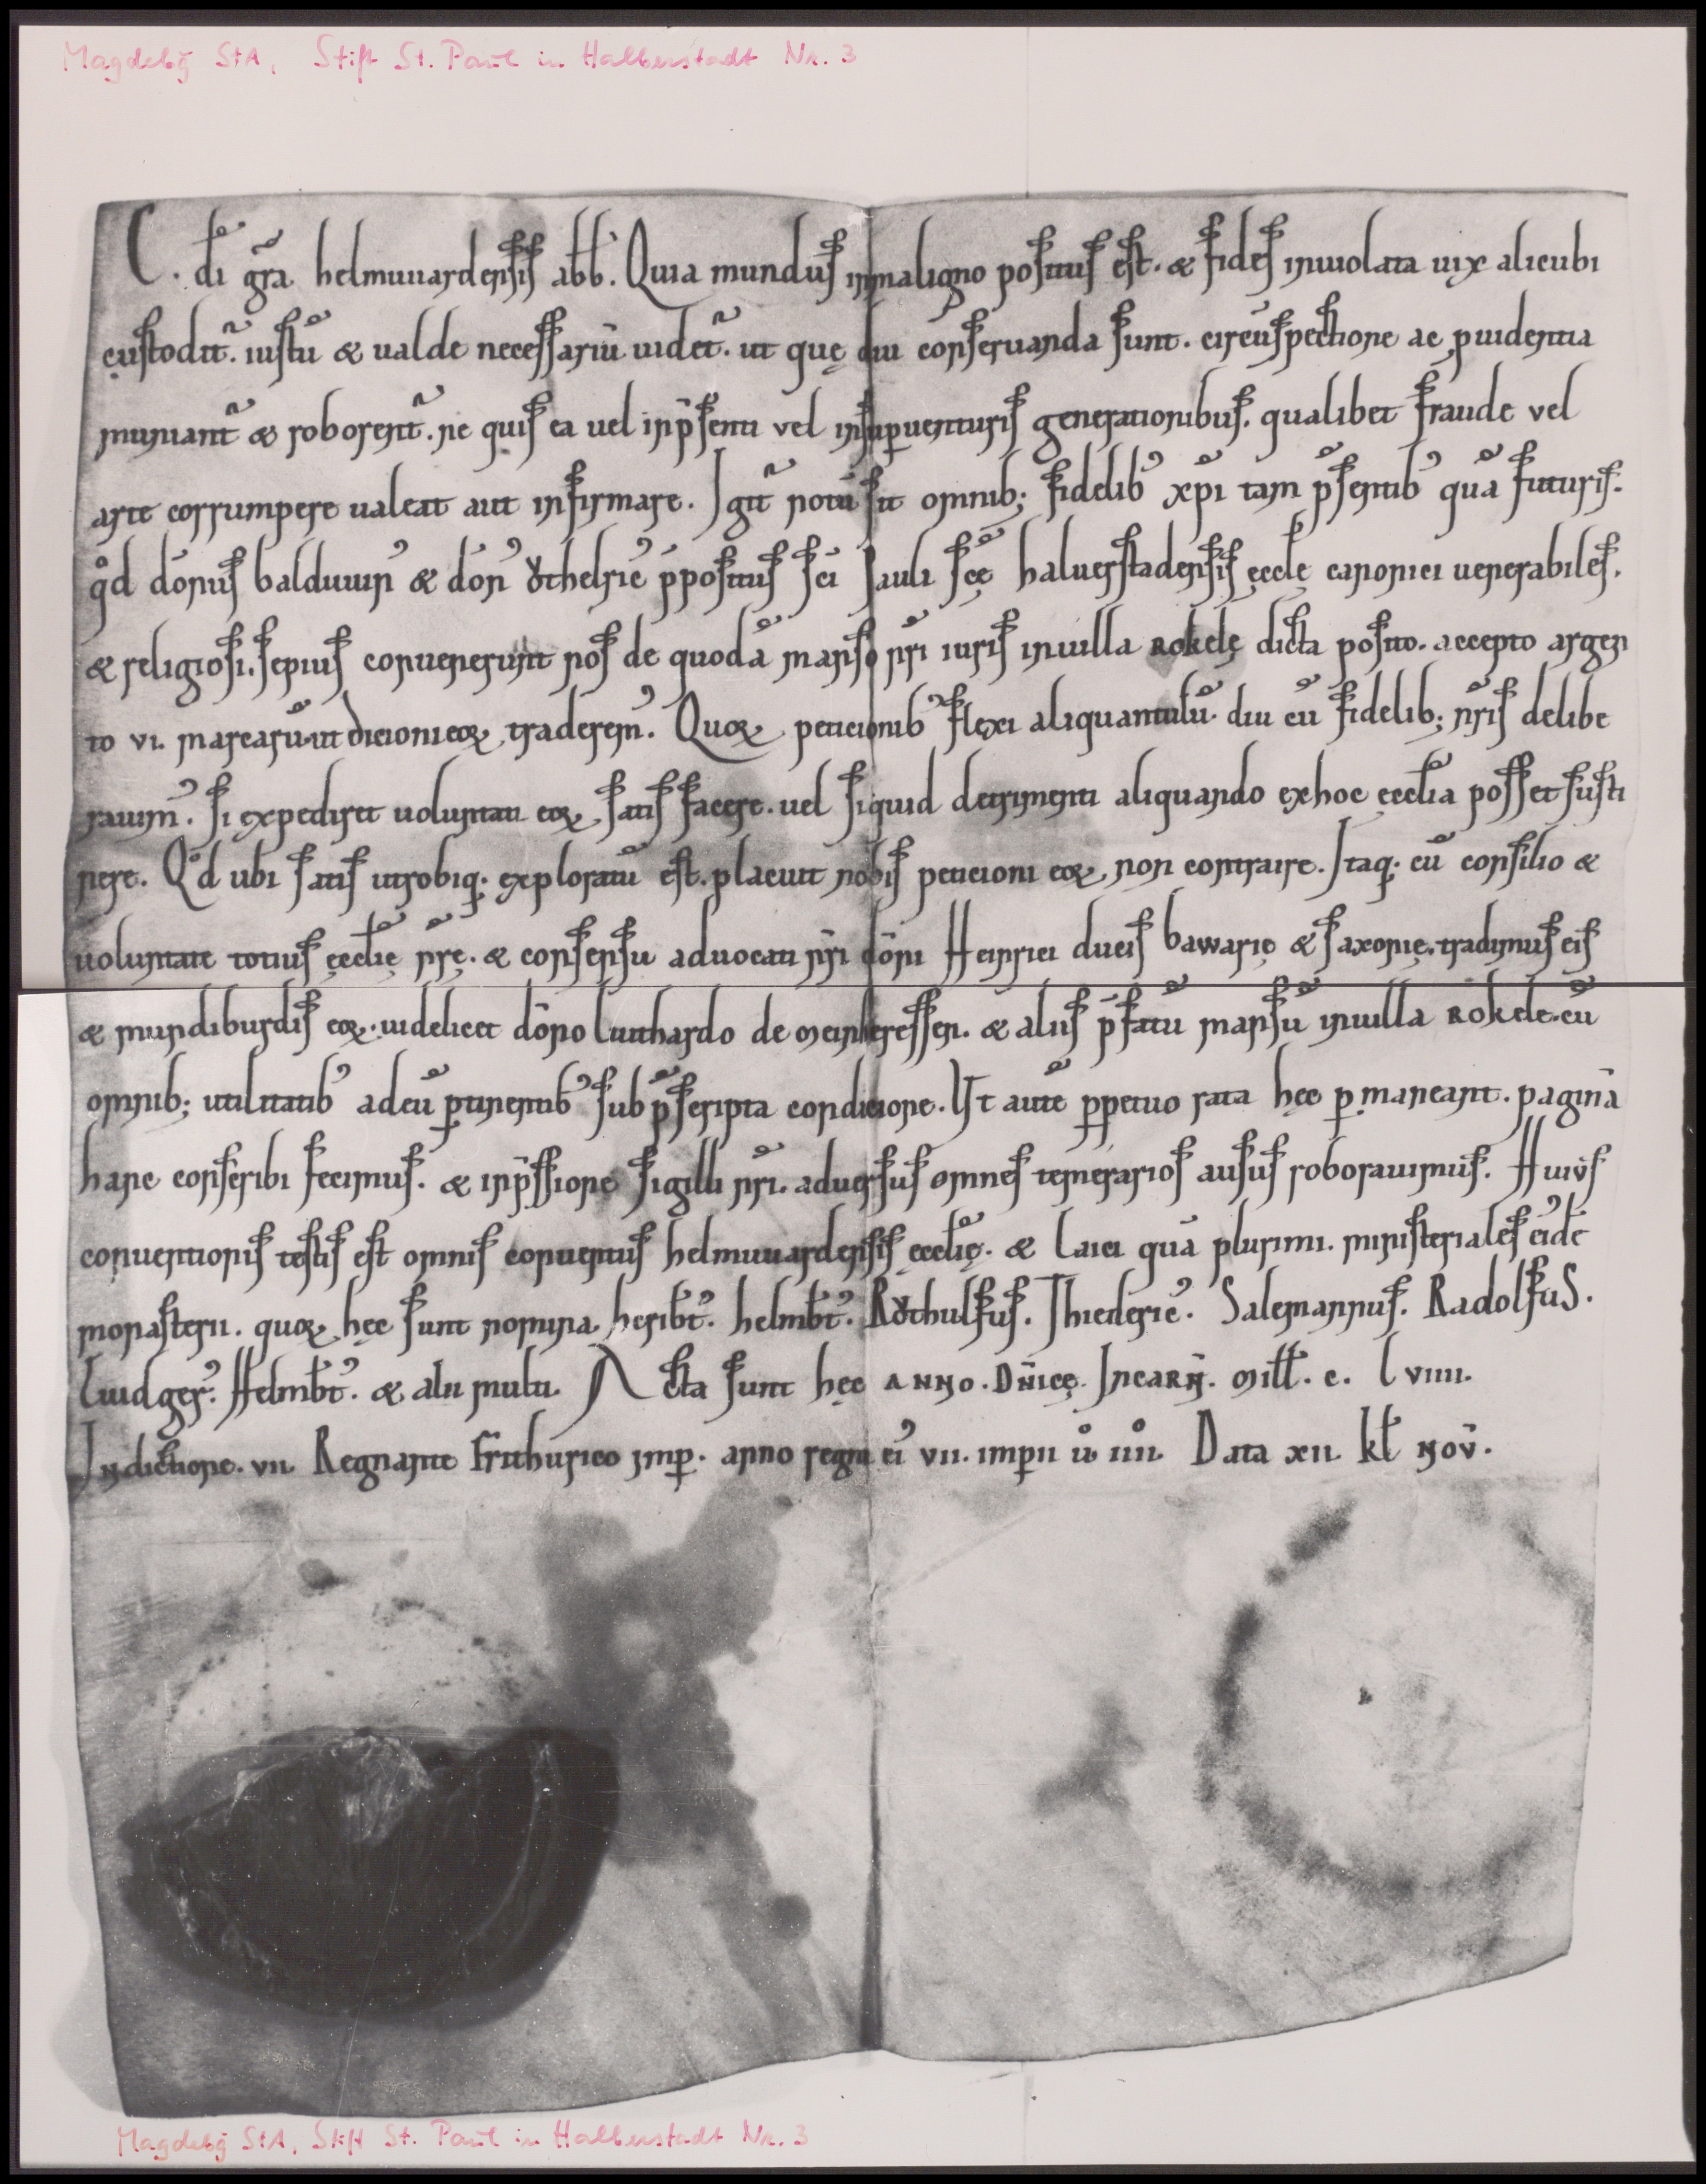 Magdebg̃ StA, Stift St. Paul in Halberstadt Nr. 3
C. dī gr̄a helmuuardensis abb̄. Quia mundus inmaligno positus est. & fides inuiolata uix alicubi
custodit᷑. iustū & ualde necessariū uidet᷑. ut quę diu conseruanda sunt. circūspectione ac ꝓuidentia
muniant᷑ & roborent᷑. ne quis ea uel inp̄senti vel insuꝑuenturis generationibus. qualibet fraude vel
arte corrumpere ualeat aut infirmare. Igit᷑ notū sit omnib; fidelibꝰ xp̄i tam p̄sentibꝰ quā futuris.
qd̊ don̄us balduuinꝰ & don̄ Othelricꝰ p̄positus sc̄i Pauli sc̄ę haluerstadensis ęccl̄ę canonici uenerabiles.
& religiosi. sepius conuenerunt nos de quodā manso nr̄i iuris inuilla ROkelę dicta posito. accepto argen
to vi. marcarū. ut dicioni eoꝝ traderemꝰ. Quoꝝ peticionibꝰ flexi aliquantulū. diu cū fidelib; nr̄is delibe
rauimꝰ. si expediret uoluntati eoꝝ satis facere. uel siquid detrimenti aliquando exhoc ęccl̄ia posset susti
nere. Qd̊ ubi satis utrobiq; exploratū est. placuit nobis peticioni eoꝝ non contraire. Itaq; cū consilio &
uoluntate totius ęccl̄ię nr̄ę. & consensu aduocati nr̄i dōni Heinrici ducis bawarię & saxonię. tradimus eis
& mundiburdis eoꝝ. uidelicet dōno Liuthardo de meinheressen. & aliis p̄fatū mansū inuilla ROkele. cū
omnib; utilitatibꝰ adeū ꝑtinentibꝰ sub p̄scripta condicione. Ut autē ꝑpetuo rata hęc ꝑmaneant. paginā
hanc conscribi fecimus. & inp̄ssione sigilli nr̄i. aduersus omnes temerarios ausus roborauimus. Huius
conuentionis testis est omnis conuentus helmuuardensis ęccl̄ię. & laici quā plurimi. ministeriales eiꝰdē
monasterii. quoꝝ hęc sunt nomina. heribt̄ꝰ. helmbt̄ꝰ. Rothulfus. Thiedericꝰ. Salemannus. Radolfus.
Luidgerꝰ. Helmbt̄ꝰ. & alii multi. Acta sunt hęc ANNO. DN̄ICę. Incarn̄. mill̄. c. lviiii.
Indictione. vii. Regnante Frithurico imꝑ. anno regni eiꝰ vii. imꝑii ů iiii. Data xii. kl̄ Nov̄.
Magdebg̃ StA, Stift St. Paul in Halberstadt Nr. 3